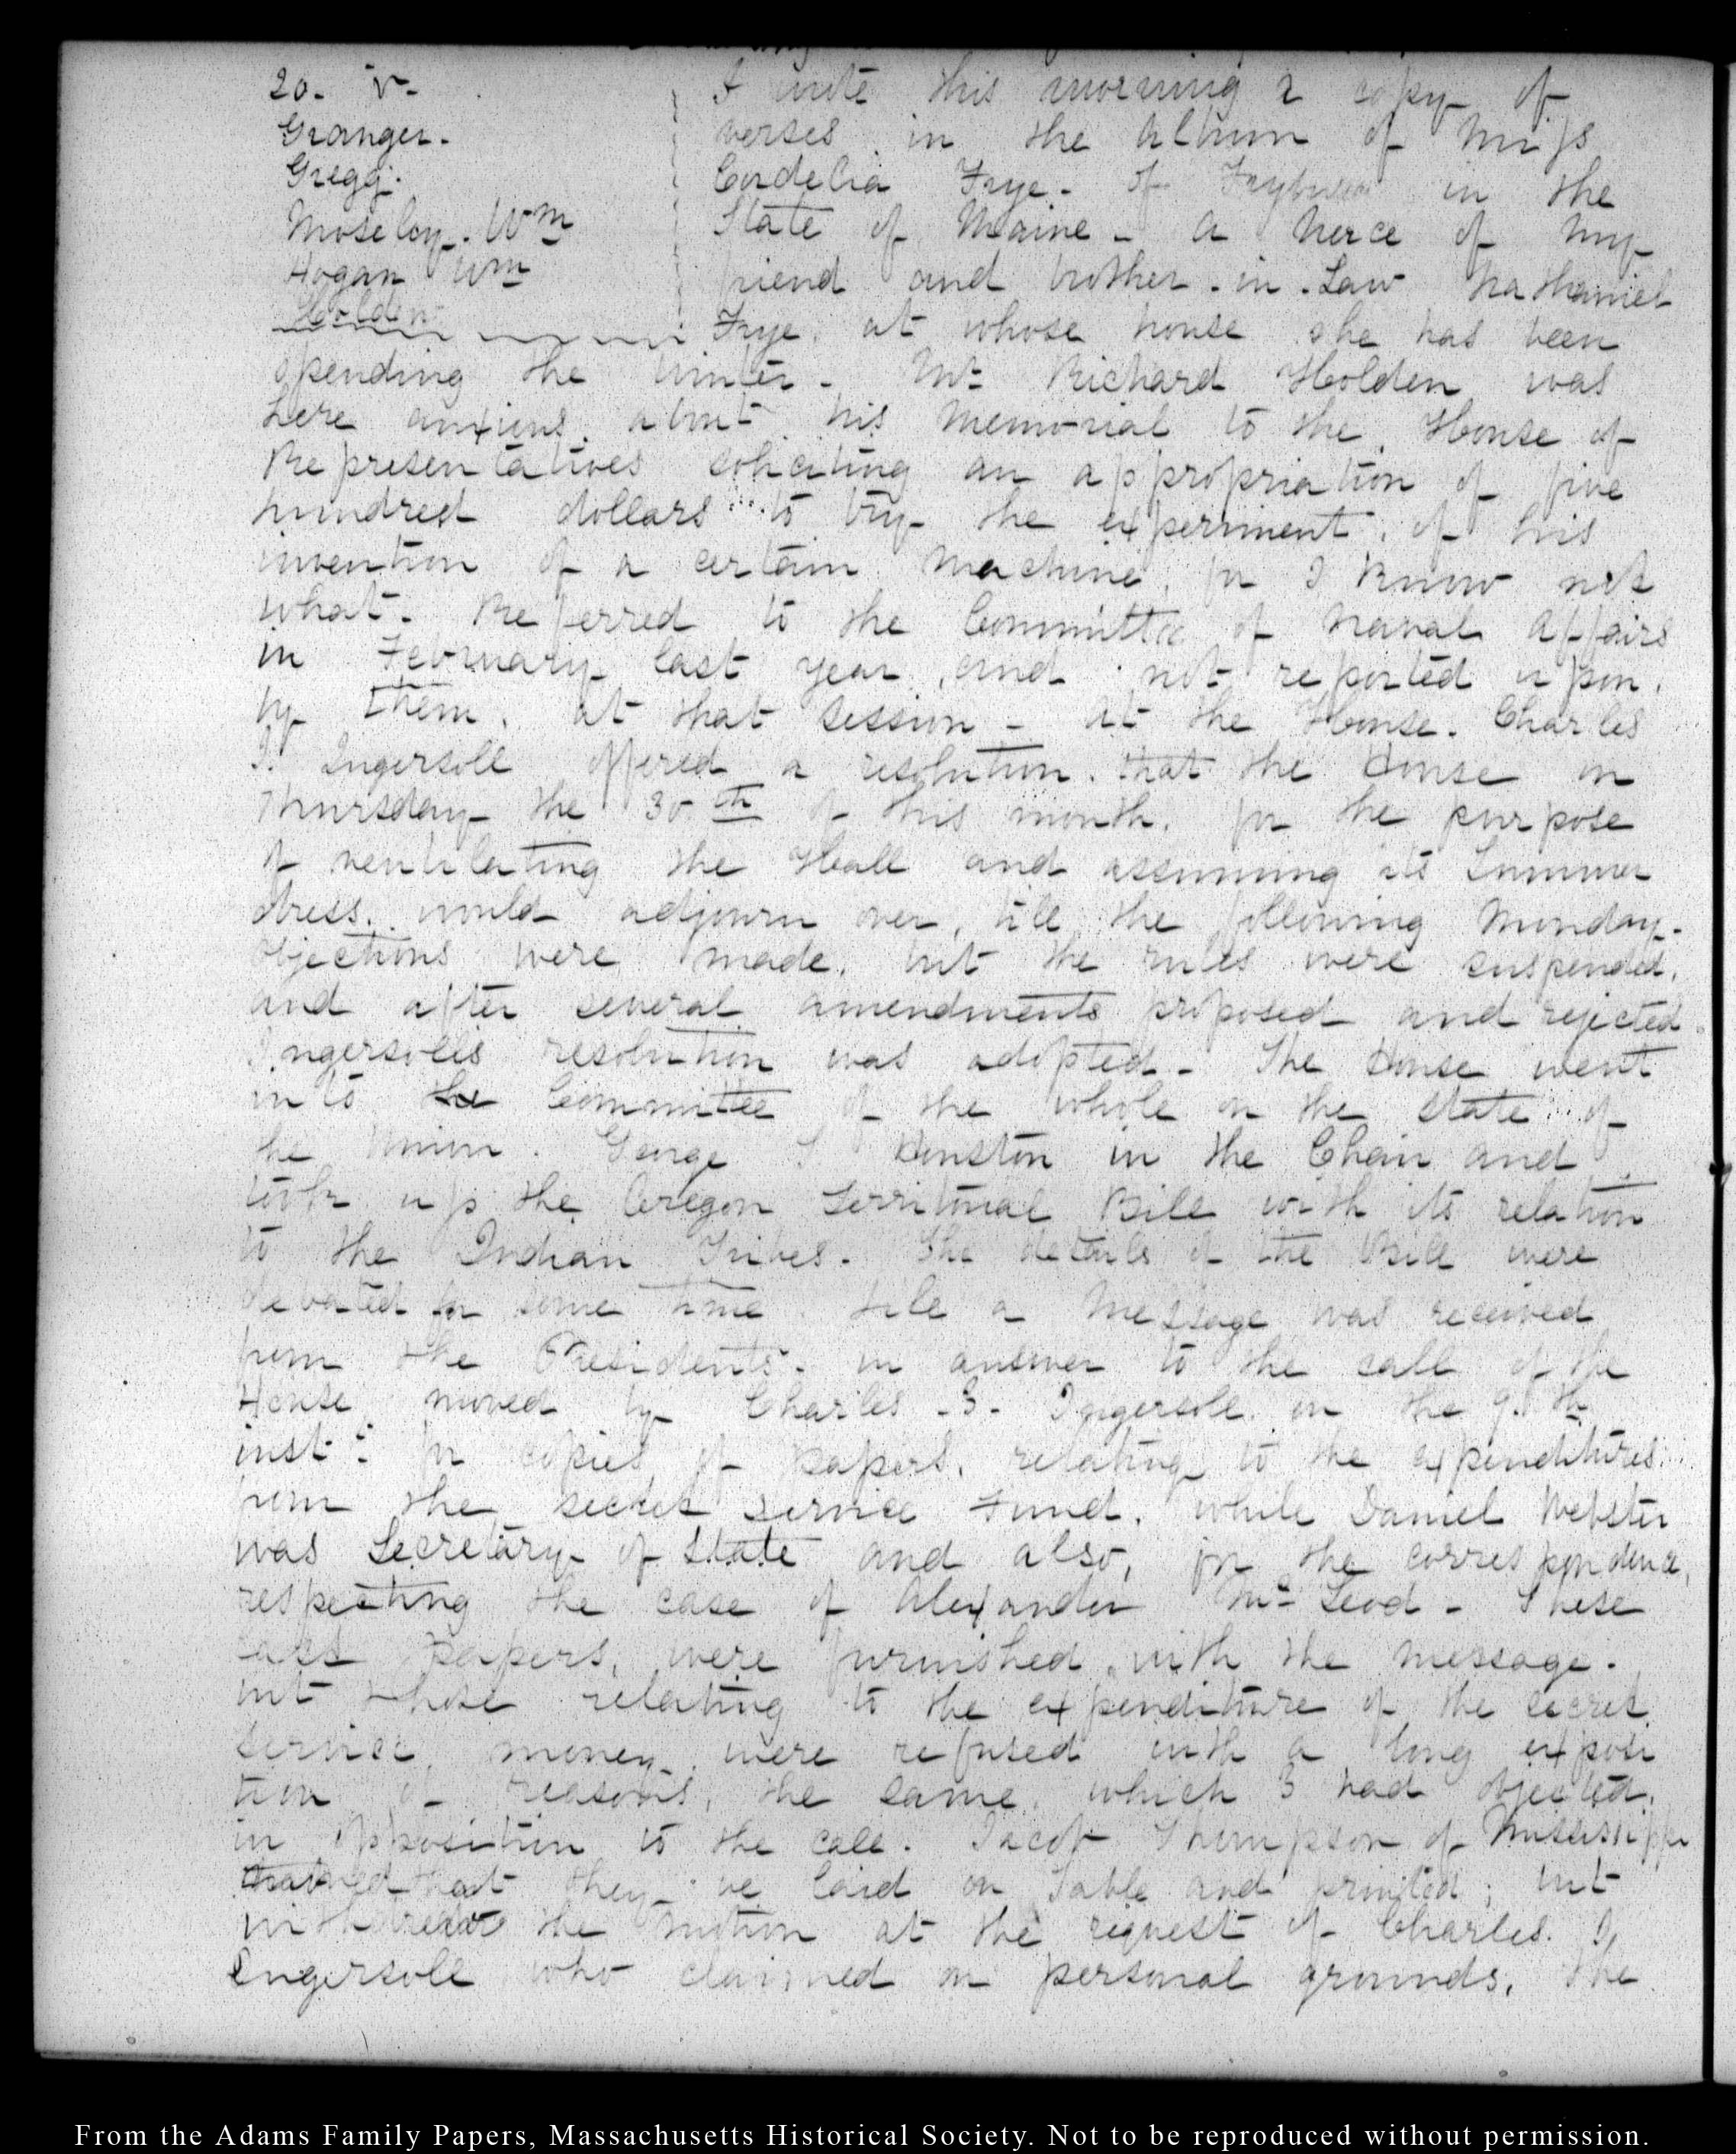 20. V.
Granger.
Gregg.
Moseley. Wm
Hogan Wm
Holden
I write this morning a copy of
verses in the Album of Miss
Cordelia Frye. of in the
State of Maine - a Neice of my
friend and brother-in-Law Nathaniel
Frye. at whose house she has been
spending the Winter - Mr. Richard Holden was
here anxious about his Memorial to the House of
Representatives soliciting an appropriation of five
hundred dollars to try the experiment of his
invention of a certain Machine, for I know not
what. Referred to the Committee of Naval Affairs
in February last year, and not reported upon,
by them, at that session - At the House. Charles
J. Ingersoll offered a resolution, that the House on
Thursday the 30.th of this month, for the purpose
of ventilating the Hall and assuming its Summer
dress, would adjourn over, till the following Monday.
Objections were made, but the rules were suspended,
and after several amendments proposed and rejected.
Ingersolls resolution was adopted. The House went
into the Committee of the whole on the State of
the Union. George S Houston in the Chair and
took up the Oregon Territorial Bill with its relation
to the Indian Tribes. The details of the Bill were
debated for some time. till a Message was received
from the Presidents. in answer to the call of the
House moved by Charles J. Ingersoll on the 9.th
inst: for copies of papers, relating to the expenditures
from the secret service Fund, while Daniel Webster
was Secretary of State and also, for the correspondence,
respecting the case of Alexander Mc Leod - These
last papers, were furnished with the message.
but those relating to the expenditure of the secret
service money were refused with a long exposi
tion of reasons, the same which I had objected,
in opposition to the call. Jacob Thompson of Mississippi
that they be laid on Table and printed; but
withdrew the motion at the request of Charles. J.
Ingersoll who claimed on personal grounds, the
From the Adams Family Papers, Massachusetts Historical Society. Not to be reproduced without permission.